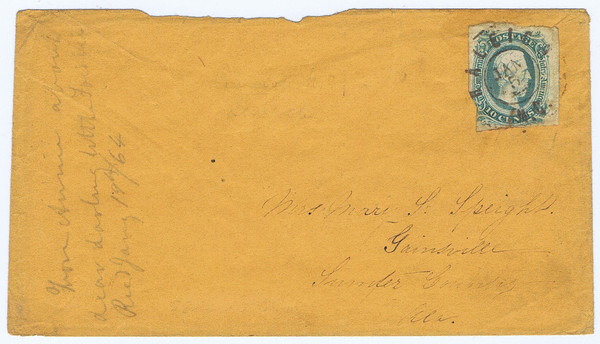 RALEIGH
JAN
N.C.
POSTAGE
TEN CENTS
Mrs Mary S. Speight.
Gainsville
Sumter County
Ala.
From Annie about
dear darling little
Recd Jany 18th/64